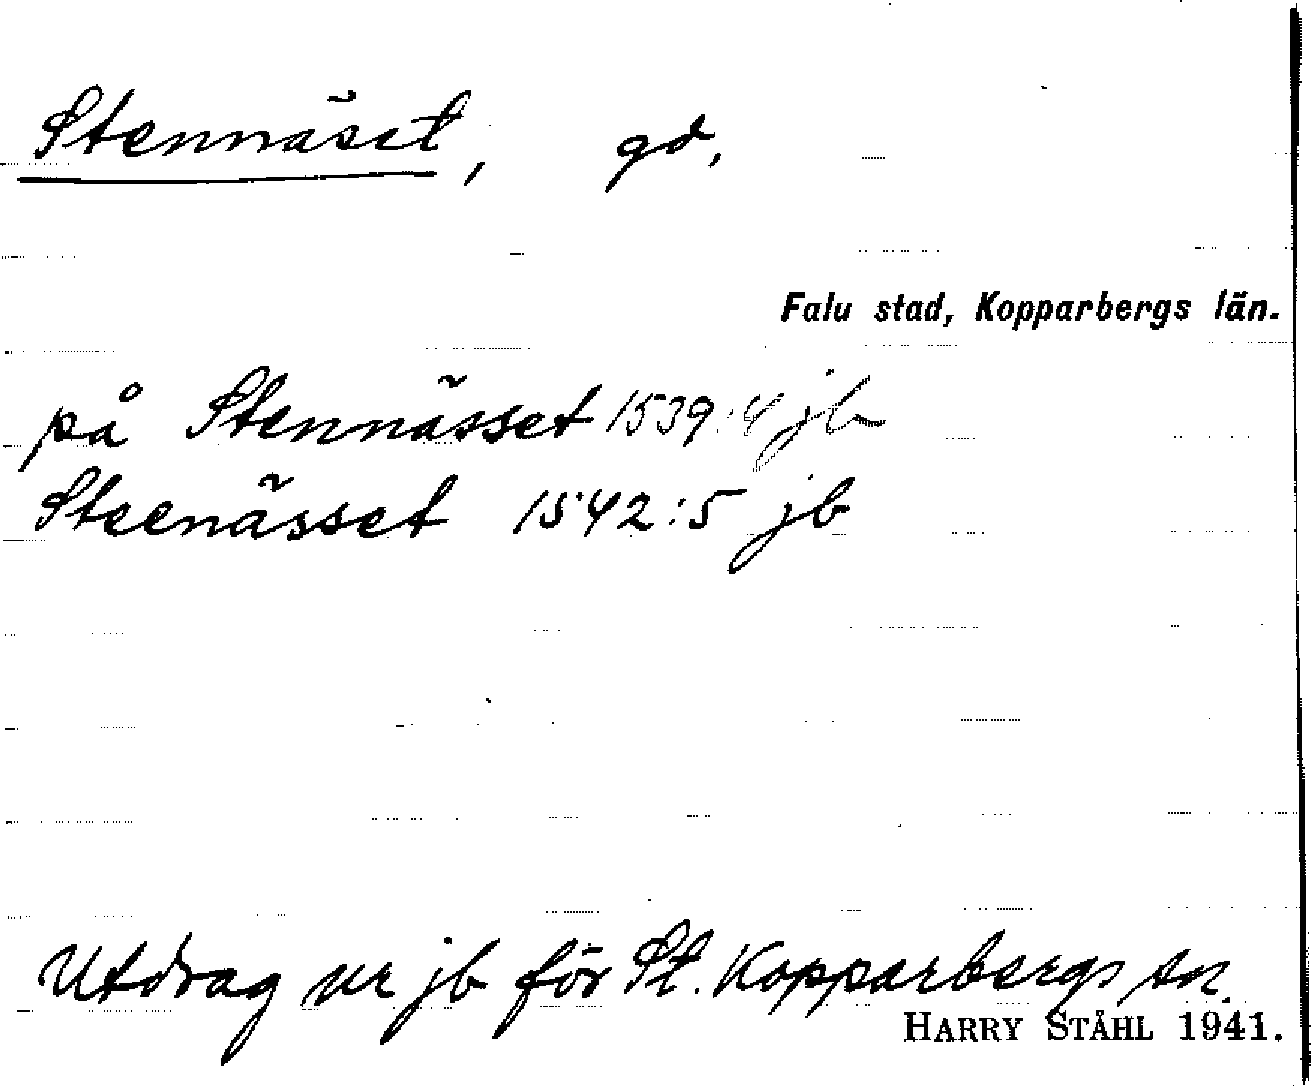 Stennäset, gd.
Falu stad, Kopparbergs län.
på Stennässet 1539:4 jb
Steenässet 1542:5 jb
Utdrag ur jb för St. Kopparbergs sn.
HARRY STÅHL 1941.